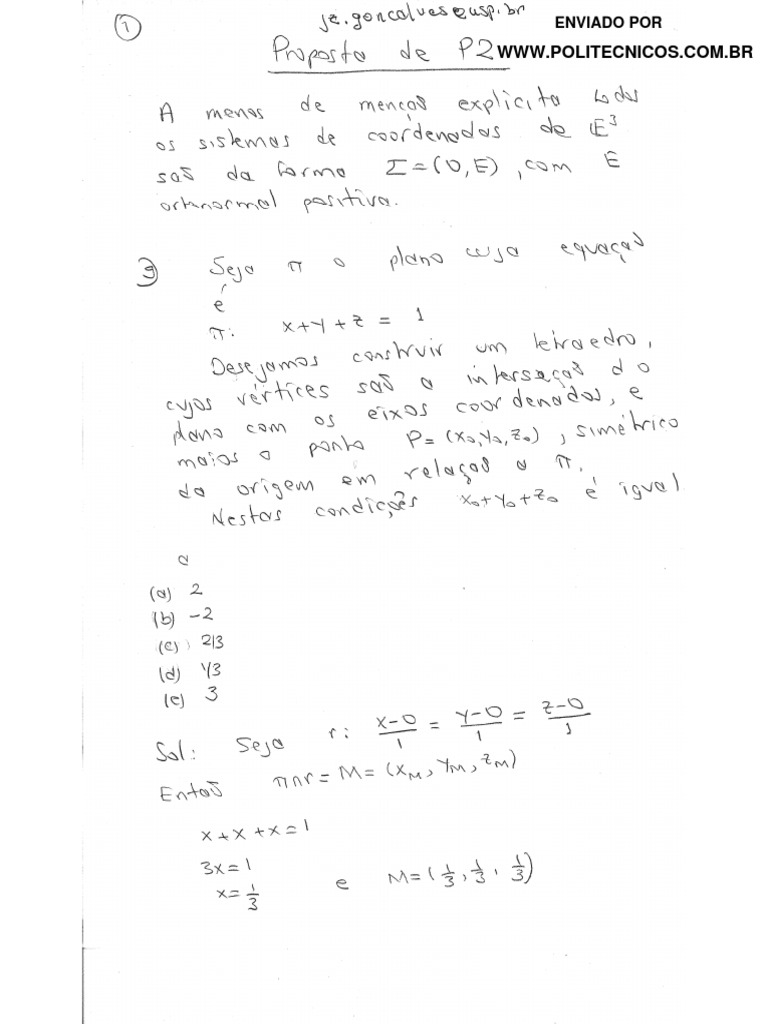 1
je.goncalves@usp.br
ENVIADO POR
Proposta de P2
WWW.POLITECNICOS.COM.BR
A menos de menção explícita todos
os sistemas de coordenadas de E³
são da forma Σ=(O,E), com E
ortonormal positiva.
Seja π o plano cuja equação
é
π: x+y+z = 1
Desejamos construir um tetraedro,
cujos vértices são a interseção do
plano com os eixos coordenados, e
maios o ponto P=(x₀,y₀,z₀), simétrico
da origem em relação a π.
Nestas condições x₀+y₀+z₀ é igual
a
(a) 2
(b) -2
(c) 2/3
(d) 1/3
(e) 3
Sol: Seja r: x-0/1 = y-0/1 = z-0/1
Então π∩r = M = (x_M, y_M, z_M)
x+x+x=1
3x=1
x=1/3 e M=(1/3, 1/3, 1/3)